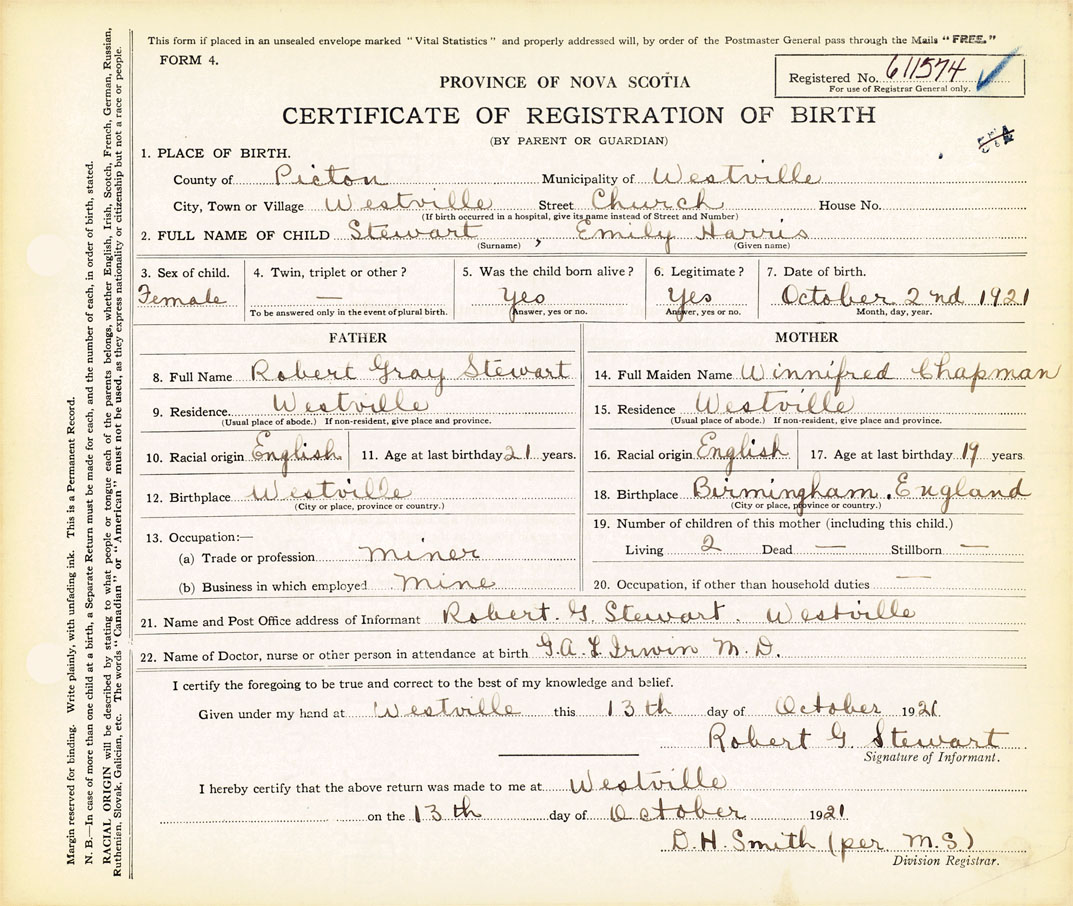 This form if placed in an unsealed envelope marked "Vital Statistics" and properly addressed will, by order of the Postmaster General pass through the Mails "FREE."
FORM 4.
Registered No. 611574
For use of Registrar General only.
PROVINCE OF NOVA SCOTIA
CERTIFICATE OF REGISTRATION OF BIRTH
(BY PARENT OR GUARDIAN)
1. PLACE OF BIRTH.
County of Picton Municipality of Westville
City, Town or Village Westville Street Church House No.
(If birth occurred in a hospital, give its name instead of Street and Number)
2. FULL NAME OF CHILD Stewart , Emily Harris
(Surname) (Given name)
3. Sex of child. 4. Twin, triplet or other? 5. Was the child born alive? 6. Legitimate? 7. Date of birth.
Female — Yes Yes October 2nd 1921
To be answered only in the event of plural birth. Answer, yes or no. Answer, yes or no. Month, day, year.
FATHER
8. Full Name Robert Gray Stewart
9. Residence. Westville
(Usual place of abode.) If non-resident, give place and province.
10. Racial origin English 11. Age at last birthday 21 years.
12. Birthplace Westville
(City or place, province or country.)
13. Occupation:—
(a) Trade or profession Miner
(b) Business in which employed Mine
MOTHER
14. Full Maiden Name Winnifred Chapman
15. Residence Westville
(Usual place of abode.) If non-resident, give place and province.
16. Racial origin English 17. Age at last birthday 19 years
18. Birthplace Birmingham, England
(City or place, province or country.)
19. Number of children of this mother (including this child.)
Living 2 Dead — Stillborn —
20. Occupation, if other than household duties —
21. Name and Post Office address of Informant Robert. G. Stewart. Westville
22. Name of Doctor, nurse or other person in attendance at birth G.A.L. Irwin M.D.
I certify the foregoing to be true and correct to the best of my knowledge and belief.
Given under my hand at Westville this 13th day of October 1921.
Robert G. Stewart
Signature of Informant.
I hereby certify that the above return was made to me at Westville
on the 13th day of October 1921.
D.H. Smith (per M.S)
Division Registrar.
Margin reserved for binding. Write plainly, with unfading ink. This is a Permanent Record.
N. B.—In case of more than one child at a birth, a Separate Return must be made for each, and the number of each, in order of birth, stated.
RACIAL ORIGIN will be described by stating to what people or tongue each of the parents belongs, whether English, Irish, Scotch, French, German, Russian,
Ruthenian, Slovak, Galician, etc. The words "Canadian" or "American" must not be used, as they express nationality or citizenship but not a race or people.